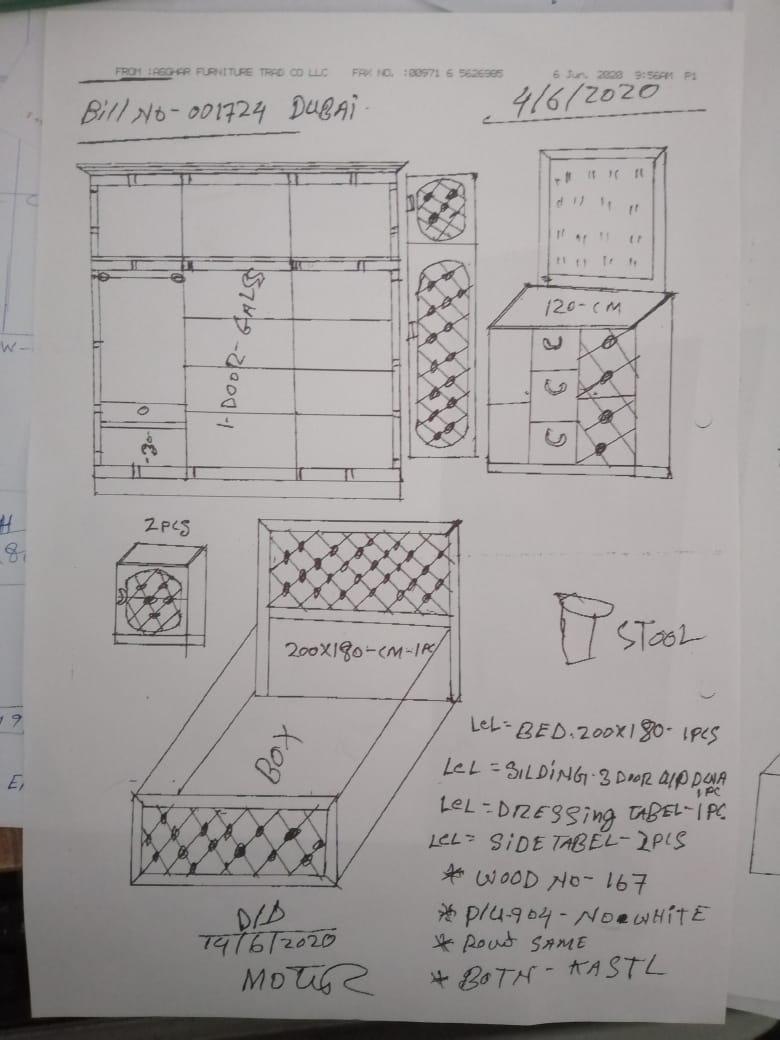 FROM :ASGHAR FURNITURE TRAD CO LLC FAX NO. :00971 6 5626985 6 Jun. 2020 9:56AM P1
Bill No-001724 DUBAi.
4/6/2020
120-CM
1-DOOR-GALS
-30-
2PCS
200X180-CM-1PC
BOX
STOOL
LCL=BED.200X180-1PCS
LCL=SILDING.3DOOR
1PC
LCL=DRESSing TABEL-1PC
LCL=SIDETABEL-2PCS
* WOOD NO-167
* P/U-904-NO WHITE
* SAME
* BOTN-KASTL
D/D
14/6/2020